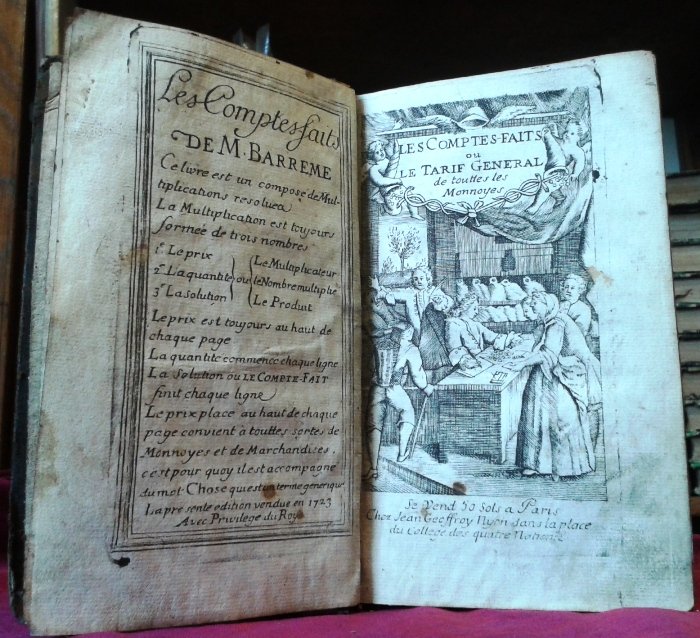 Les Comptes faits
DE M. BARREME
Ce livre est un composé de Mul-
tiplications resolues
La Multiplication est toujours
formée de trois nombres
1.º Le prix
2.º La quantité
3.º La solution
ou
Le Multiplicateur
le Nombre multiplié
Le Produit
Le prix est toujours au haut de
chaque page
La quantité commence chaque ligne
La solution ou LE COMPTE-FAIT
finit chaque ligne
Le prix placé au haut de chaque
page convient à touttes sortes de
Monnoyes et de Marchandises.
c'est pour quoy il est accompagné
du mot Chose qui est un terme generique
La presente edition vendue en 1723
Avec Privilege du Roy
LES COMPTES-FAITS
ou
LE TARIF GENERAL
de touttes les
Monnoyes
Se Vend 50 Sols a Paris
Chez Jean Geoffroy Nyon dans la place
du College des quatre Nations